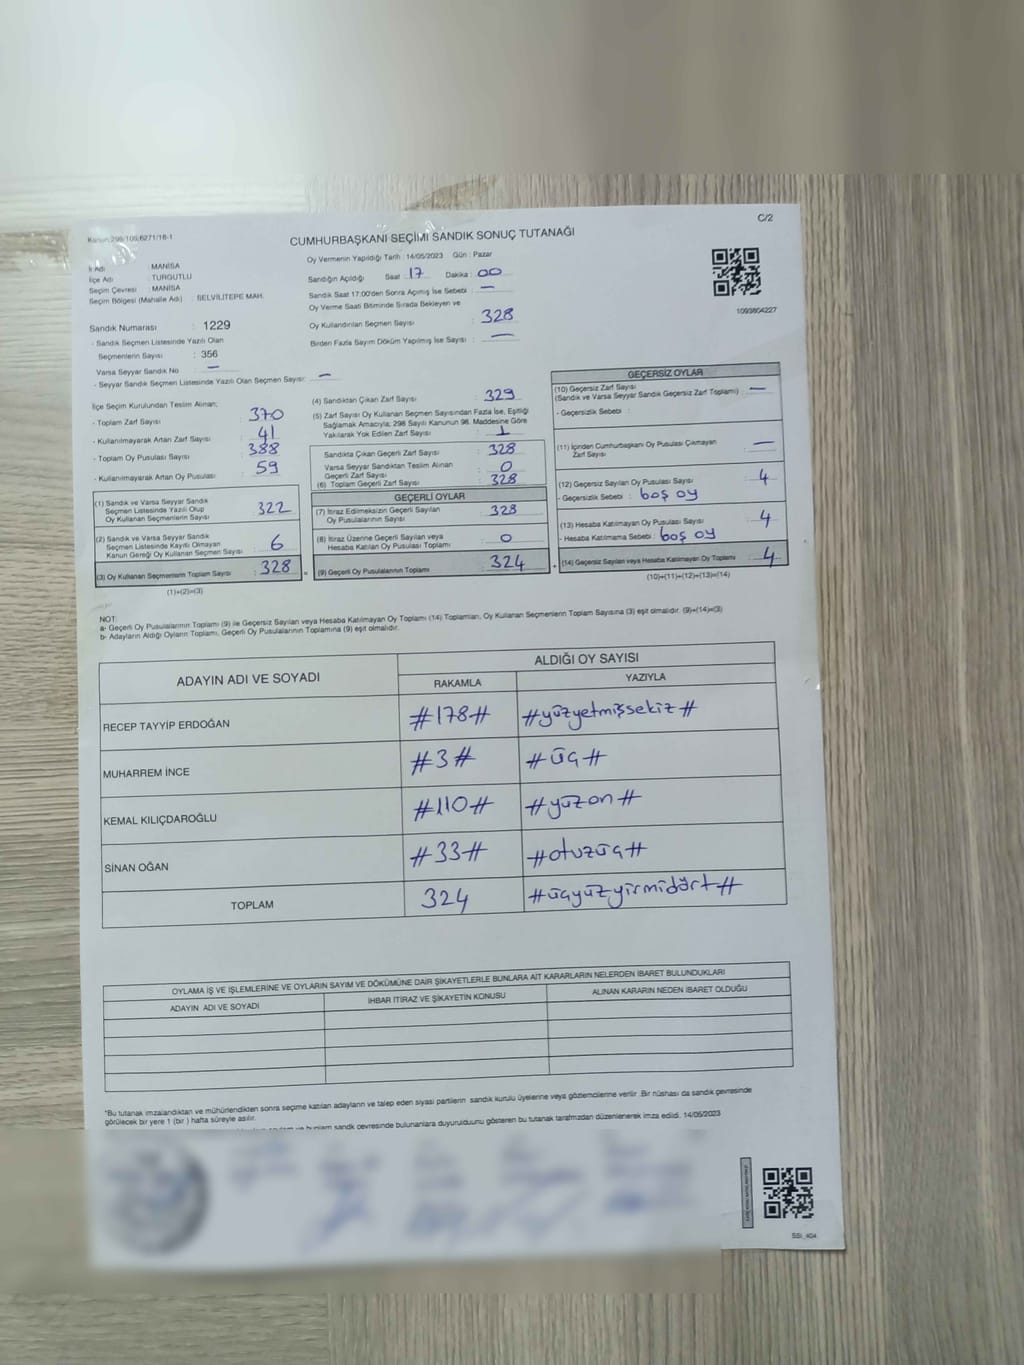 Kanun:298/109;6271/18-1
C/2
CUMHURBAŞKANI SEÇİMİ SANDIK SONUÇ TUTANAĞI
İl Adı : MANİSA
İlçe Adı : TURGUTLU
Seçim Çevresi : MANİSA
Seçim Bölgesi (Mahalle Adı) : SELVİLİTEPE MAH.
Sandık Numarası : 1229
- Sandık Seçmen Listesinde Yazılı Olan
Seçmenlerin Sayısı : 356
Varsa Seyyar Sandık No —
- Seyyar Sandık Seçmen Listesinde Yazılı Olan Seçmen Sayısı: —
Oy Vermenin Yapıldığı Tarih : 14/05/2023 Gün : Pazar
Sandığın Açıldığı Saat : 17 Dakika : 00
Sandık Saat 17:00'den Sonra Açılmış İse Sebebi : —
Oy Verme Saati Bitiminde Sırada Bekleyen ve
Oy Kullandırılan Seçmen Sayısı : 328
Birden Fazla Sayım Döküm Yapılmış İse Sayısı : —
1093804227
İlçe Seçim Kurulundan Teslim Alınan;
- Toplam Zarf Sayısı : 370
- Kullanılmayarak Artan Zarf Sayısı : 41
- Toplam Oy Pusulası Sayısı : 388
- Kullanılmayarak Artan Oy Pusulası : 59
(1) Sandık ve Varsa Seyyar Sandık
Seçmen Listesinde Yazılı Olup
Oy Kullanan Seçmenlerin Sayısı : 322
(2) Sandık ve Varsa Seyyar Sandık
Seçmen Listesinde Kayıtlı Olmayan
Kanun Gereği Oy Kullanan Seçmen Sayısı : 6
(3) Oy Kullanan Seçmenlerin Toplam Sayısı : 328
(1)+(2)=(3)
(4) Sandıktan Çıkan Zarf Sayısı : 329
(5) Zarf Sayısı Oy Kullanan Seçmen Sayısından Fazla İse, Eşitliği
Sağlamak Amacıyla; 298 Sayılı Kanunun 98. Maddesine Göre
Yakılarak Yok Edilen Zarf Sayısı : 1
Sandıkta Çıkan Geçerli Zarf Sayısı : 328
Varsa Seyyar Sandıktan Teslim Alınan
Geçerli Zarf Sayısı : 0
(6) Toplam Geçerli Zarf Sayısı : 328
GEÇERLİ OYLAR
(7) İtiraz Edilmeksizin Geçerli Sayılan
Oy Pusulasının Sayısı : 328
(8) İtiraz Üzerine Geçerli Sayılan veya
Hesaba Katılan Oy Pusulası Toplamı : 0
= (9) Geçerli Oy Pusulalarının Toplamı : 324
GEÇERSİZ OYLAR
(10) Geçersiz Zarf Sayısı
(Sandık ve Varsa Seyyar Sandık Geçersiz Zarf Toplamı) : —
- Geçersizlik Sebebi :
(11) İçinden Cumhurbaşkanı Oy Pusulası Çıkmayan
Zarf Sayısı : —
(12) Geçersiz Sayılan Oy Pusulası Sayısı : 4
- Geçersizlik Sebebi : boş oy
(13) Hesaba Katılmayan Oy Pusulası Sayısı : 4
- Hesaba Katılmama Sebebi : boş oy
+ (14) Geçersiz Sayılan veya Hesaba Katılmayan Oy Toplamı : 4
(10)+(11)+(12)+(13)=(14)
NOT:
a- Geçerli Oy Pusulalarının Toplamı (9) ile Geçersiz Sayılan veya Hesaba Katılmayan Oy Toplamı (14) Toplamları, Oy Kullanan Seçmenlerin Toplam Sayısına (3) eşit olmalıdır. (9)+(14)=(3)
b- Adayların Aldığı Oyların Toplamı, Geçerli Oy Pusulalarının Toplamına (9) eşit olmalıdır.
ADAYIN ADI VE SOYADI
ALDIĞI OY SAYISI
RAKAMLA YAZIYLA
RECEP TAYYİP ERDOĞAN #178# #yüzyetmişsekiz#
MUHARREM İNCE #3# #üç#
KEMAL KILIÇDAROĞLU #110# #yüzon#
SİNAN OĞAN #33# #otuzüç#
TOPLAM 324 #üçyüzyirmidört#
OYLAMA İŞ VE İŞLEMLERİNE VE OYLARIN SAYIM VE DÖKÜMÜNE DAİR ŞİKAYETLERLE BUNLARA AİT KARARLARIN NELERDEN İBARET BULUNDUKLARI
ADAYIN ADI VE SOYADI İHBAR İTİRAZ VE ŞİKAYETİN KONUSU ALINAN KARARIN NEDEN İBARET OLDUĞU
*Bu tutanak imzalandıktan ve mühürlendikten sonra seçime katılan adayların ve talep eden siyasi partilerin sandık kurulu üyelerine veya gözlemcilerine verilir. Bir nüshası da sandık çevresinde
görülecek bir yere 1 (bir ) hafta süreyle asılır.
sandık çevresinde bulunanlara duyurulduunu gösteren bu tutanak tarafımızdan düzenlenerek imza edildi. 14/05/2023
SSI_404